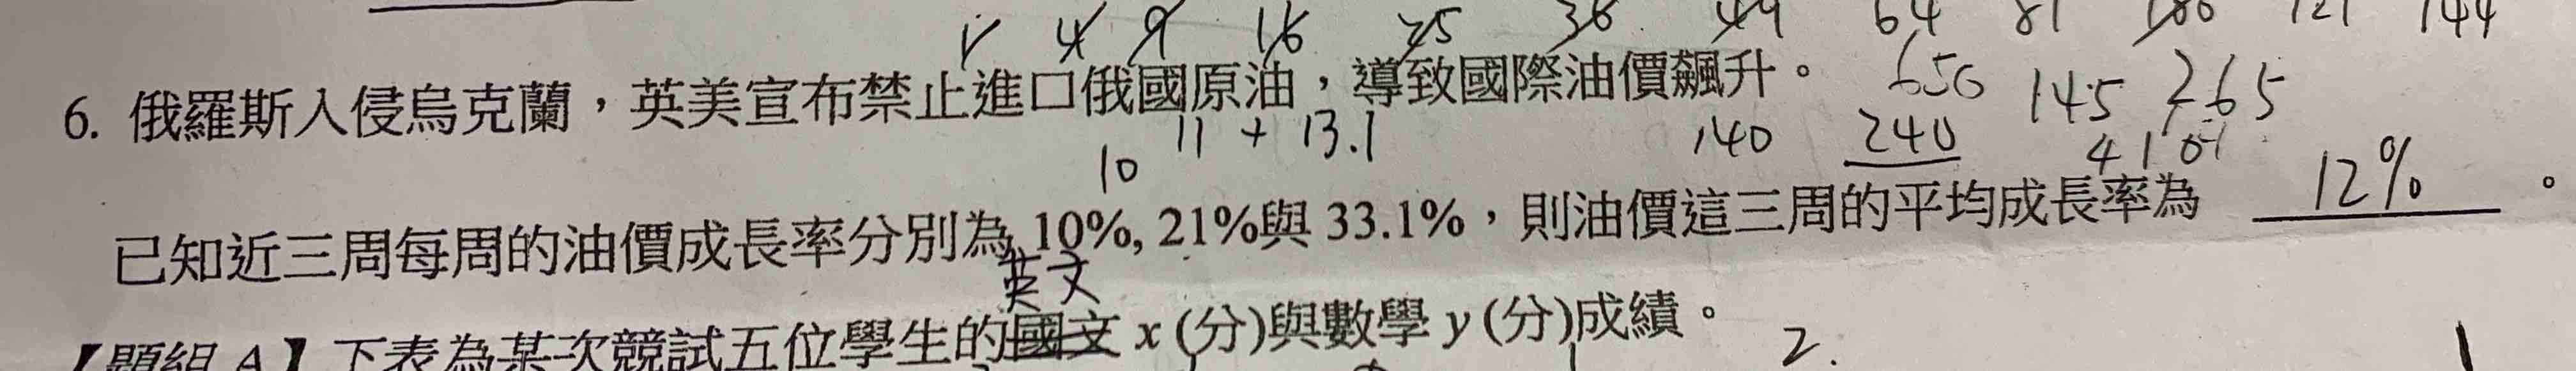 1 4 9 16 25 36 49 64 81 100 121 144
6. 俄羅斯入侵烏克蘭，英美宣布禁止進口俄國原油，導致國際油價飆升。 650 145 265
10 11 + 13.1 140 240 410
已知近三周每周的油價成長率分別為 10%, 21%與 33.1%，則油價這三周的平均成長率為 12% 。
英文
【題組 A】下表為某次競試五位學生的國文 x (分)與數學 y (分)成績。 2.